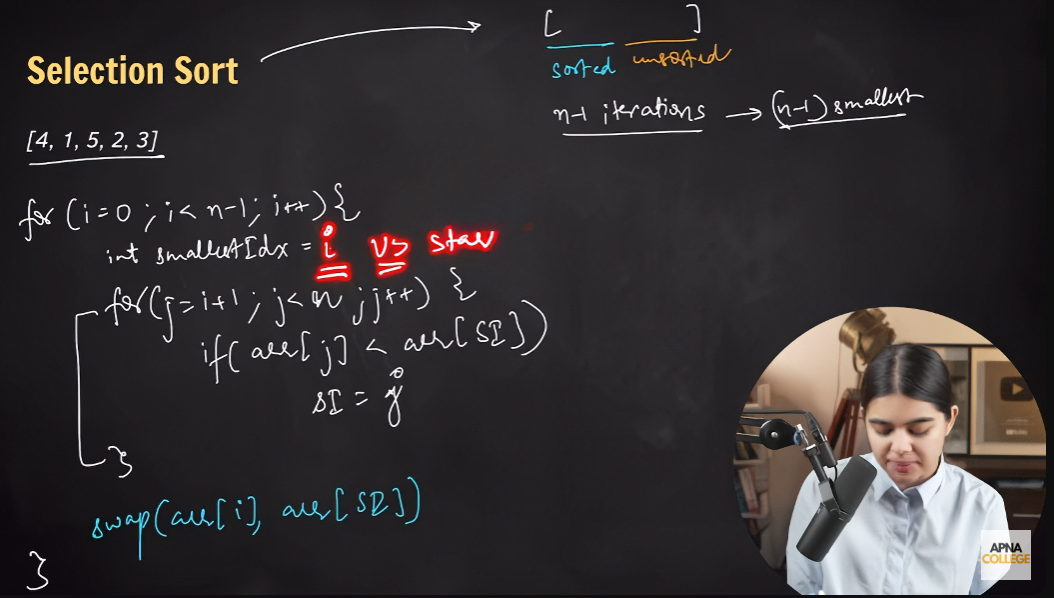 [ ]
sorted unsorted
Selection Sort
n-1 iterations → (n-1) smallest
[4, 1, 5, 2, 3]
for (i=0 ; i< n-1; i++) {
int smallestIdx = i vs star
for(j=i+1 ; j<n ; j++) {
if( arr[j] < arr[SI])
SI = j
}
swap(arr[i], arr[SI])
}
APNA
COLLEGE